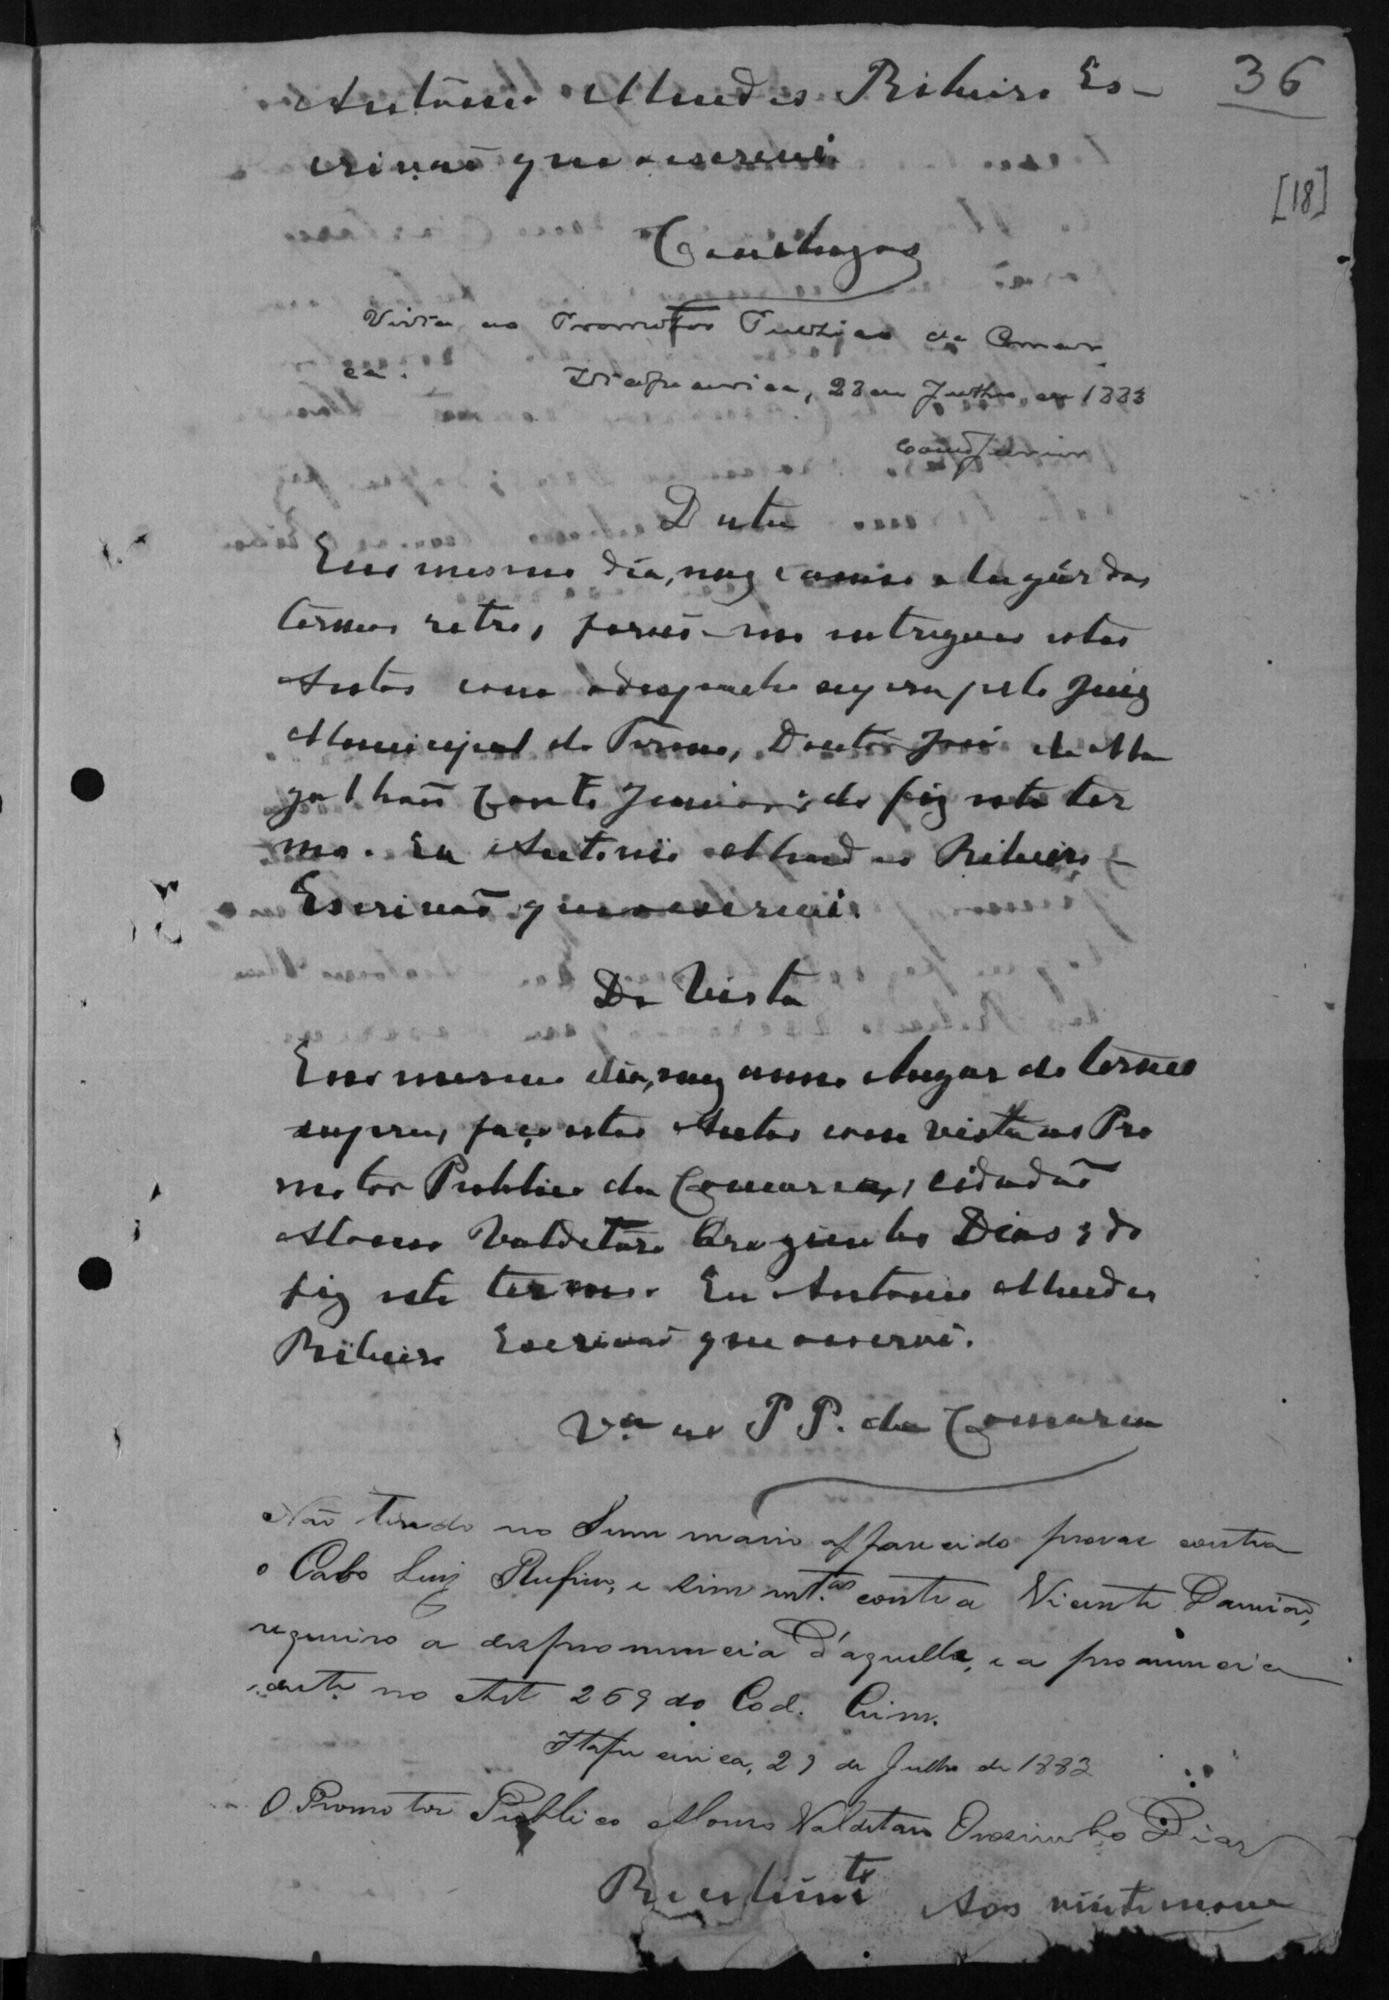 36
[18]
Antonio Mendes Ribeiro Es-
crivaõ que o escrevi.
Concluzos
Vista ao Promotor Publico da Comar
ca.
Itapicurica, 28 de Julho de 1883
Couto Junior
Data
Em o mesmo dia, mez e anno e lugar dos
têrmos retro, foraõ-me entregues estes
Autos com o despacho supra pelo Juiz
Municipal do Termo, Doutor José de Ma
galhaẽs Couto Junior; do q fiz este ter
mo. Eu Antonio Mendes Ribeiro
Escrivaõ que o escrevi.
De Vista
Em o mesmo dia, mez anno e lugar do têrmo
supra, faço estes Autos com vista ao Pro
motor Publico da Comarca, cidadaõ
Valdetaro Dias; do
fiz este termo. Eu Antonio Mendes
Ribeiro Escrivaõ que o escrevi.
Vᵃ ao P P. da Comarca
Não tendo no Summario apparecido provas contra
o Cabo Luiz Rufino, e sim mt.ᵃˢ contra Vicente Damiaõ,
requeiro a despronuncia d'aquelle, e a pronuncia
deste no Art 269 do Cod. Crim.
29 de Julho de 1883
O Promotor Publico Valdetaro Dias
Recebim.ᵗᵒ Aos vinte nove